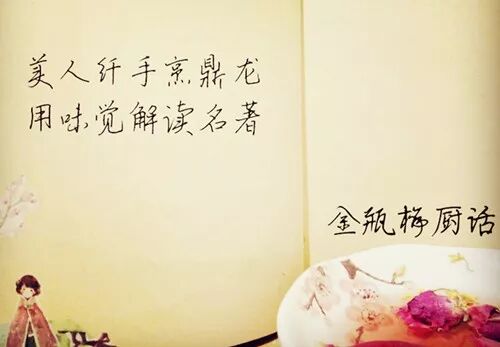 美人纤手烹鼎龙
用味觉解读名著
金瓶梅厨话